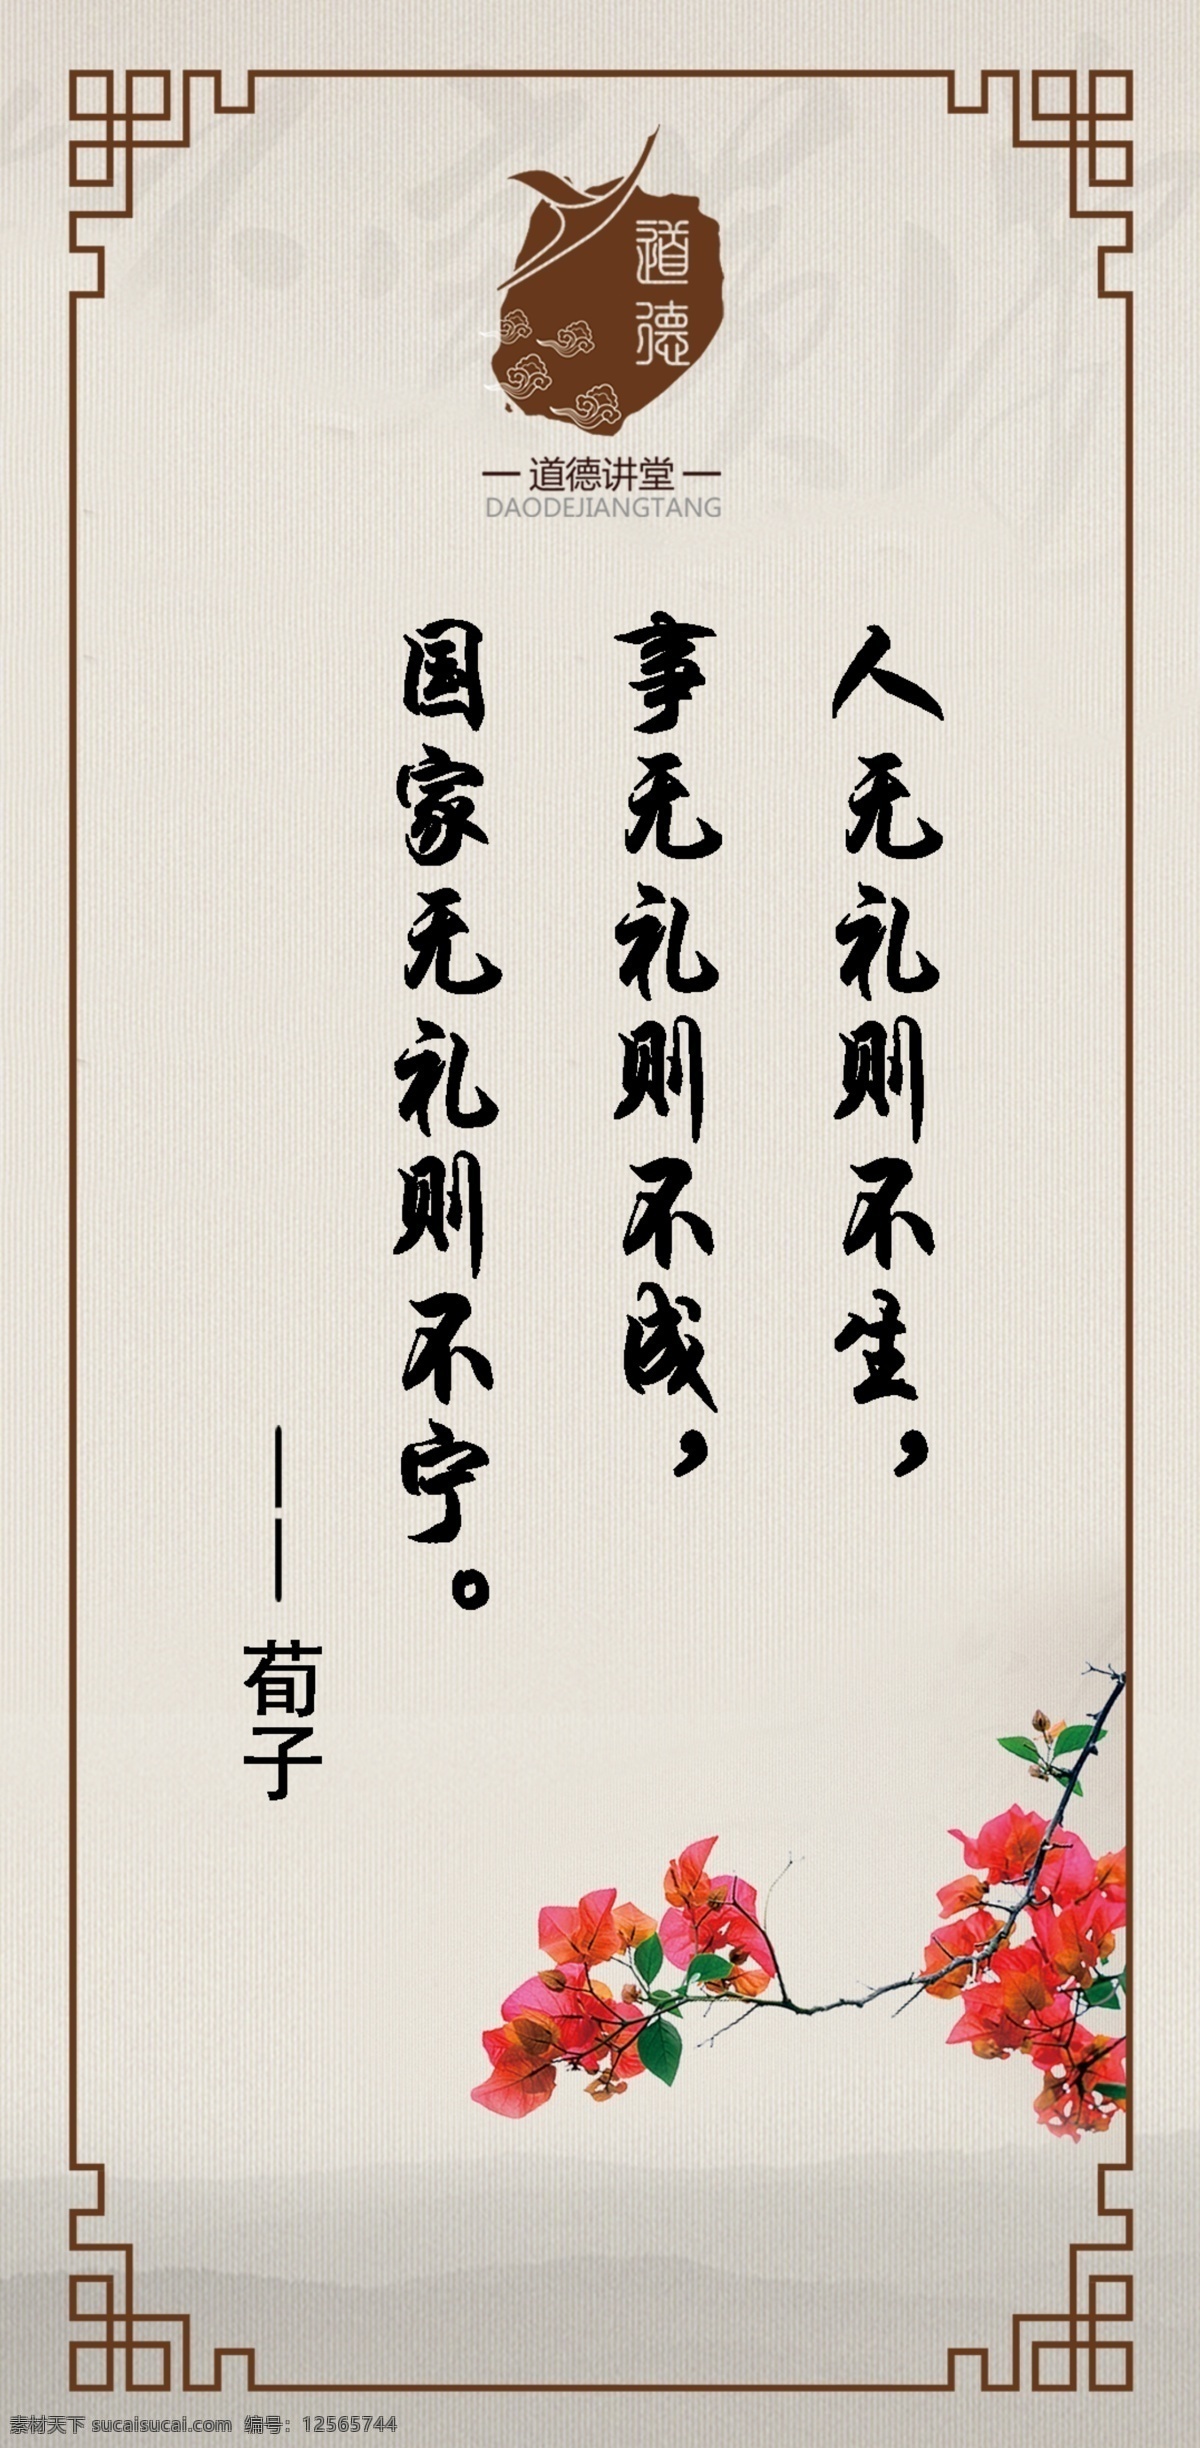 道德
道德讲堂
DAODEJIANGTANG
人无礼则不生，
事无礼则不成，
国家无礼则不宁。
——荀子
素材天下 sucaisucai.com 编号：12565744